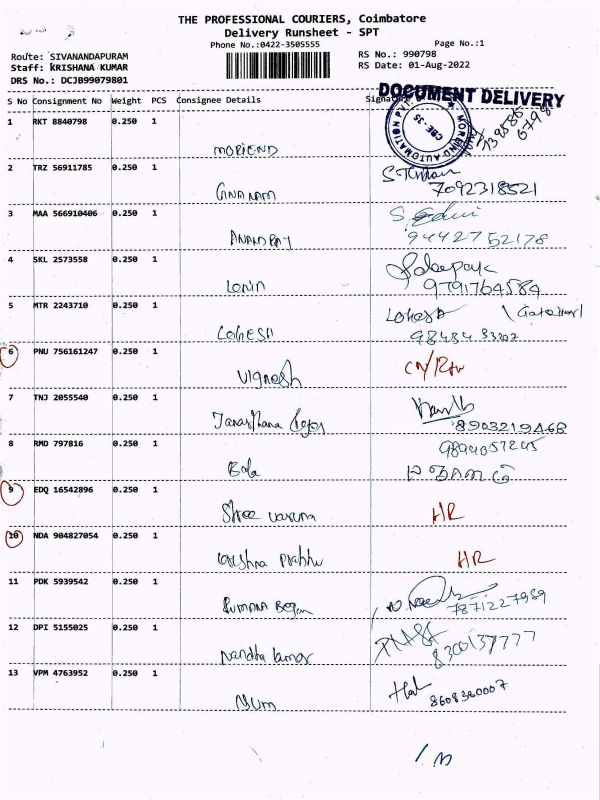 THE PROFESSIONAL COURIERS, Coimbatore
Delivery Runsheet - SPT
Phone No.:0422-3505555
Page No.:1
Route: SIVANANDAPURAM
Staff: KRISHANA KUMAR
DRS No.: DCJB99079801
RS No.: 990798
RS Date: 01-Aug-2022
DOCUMENT DELIVERY
S No Consignment No Weight PCS Consignee Details Signature
1 RKT 8840798 0.250 1
MORIEND
2 TRZ 56911785 0.250 1
7092318521
3 MAA 566910406 0.250 1
ANANDRAJ
9442752178
4 SKL 2573558 0.250 1
Deepak
9791764584
5 MTR 2243710 0.250 1
LOGESH
Logesh
98434 33207
6 PNU 756161247 0.250 1
Vignesh
7 TNJ 2055540 0.250 1
8903219468
8 RMD 797816 0.250 1
Bala
9894057245
9 EDQ 16542896 0.250 1
Shree varum
HR
10 NDA 904827054 0.250 1
Krishna Prabhu
HR
11 PDK 5939542 0.250 1
7871227989
12 DPI 5155025 0.250 1
Nandha kumar
8300137777
13 VPM 4763952 0.250 1
8608360007